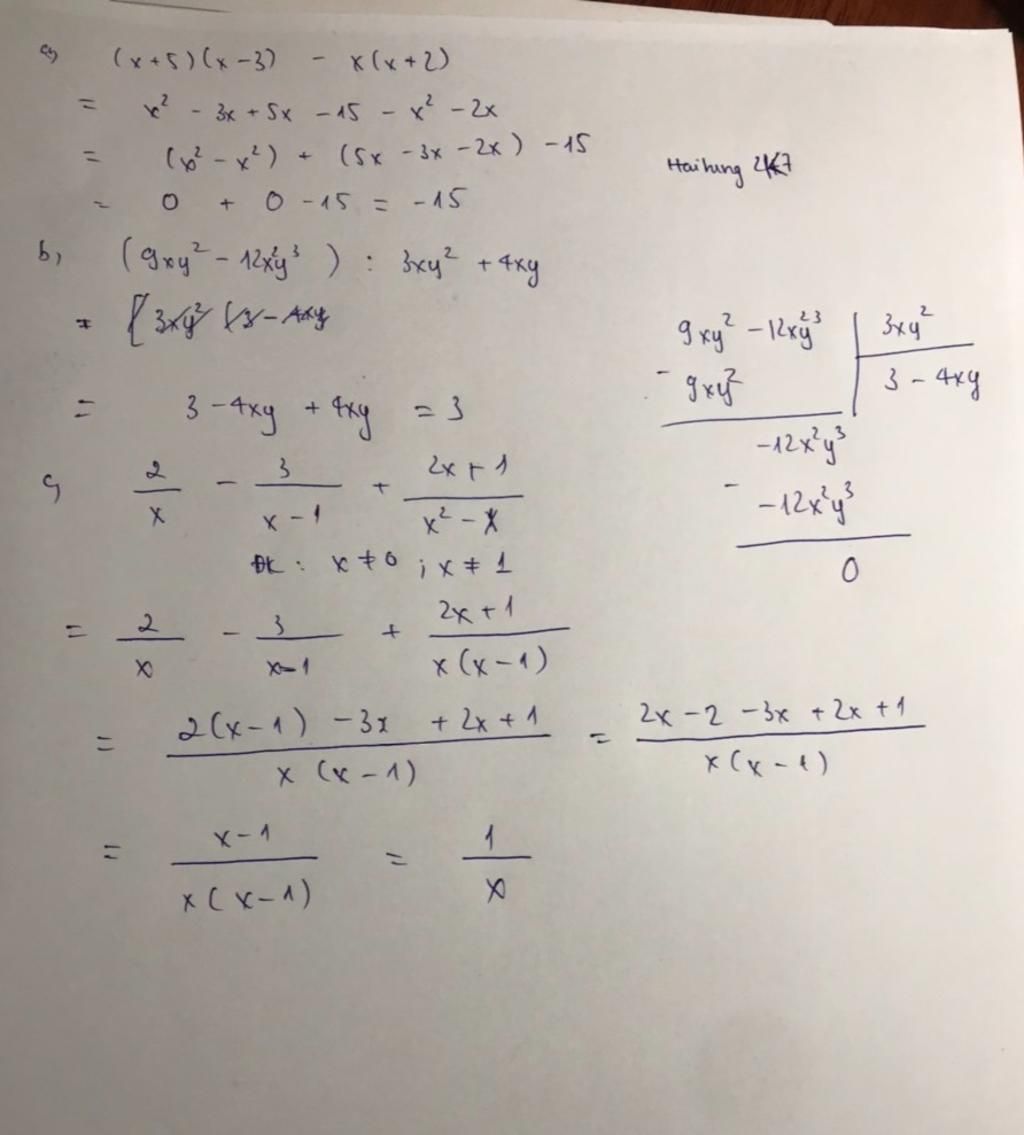 a, (x+5)(x-3) - x(x+2)
= x² - 3x + 5x - 15 - x² - 2x
= (x² - x²) + (5x - 3x - 2x) - 15
Haihung 2K7
= 0 + 0 - 15 = -15
b, (9xy² - 12x²y³) : 3xy² + 4xy
= [3xy² (3 - 4xy
= 3 - 4xy + 4xy = 3
9xy² - 12x²y³ | 3xy²
- 9xy² | 3 - 4xy
-12x²y³
- -12x²y³
0
c, 2/x - 3/(x-1) + (2x+1)/(x²-x)
ĐK: x ≠ 0 ; x ≠ 1
= 2/x - 3/(x-1) + (2x+1)/(x(x-1))
= (2(x-1) - 3x + 2x + 1)/(x(x-1)) = (2x - 2 - 3x + 2x + 1)/(x(x-1))
= (x-1)/(x(x-1)) = 1/x